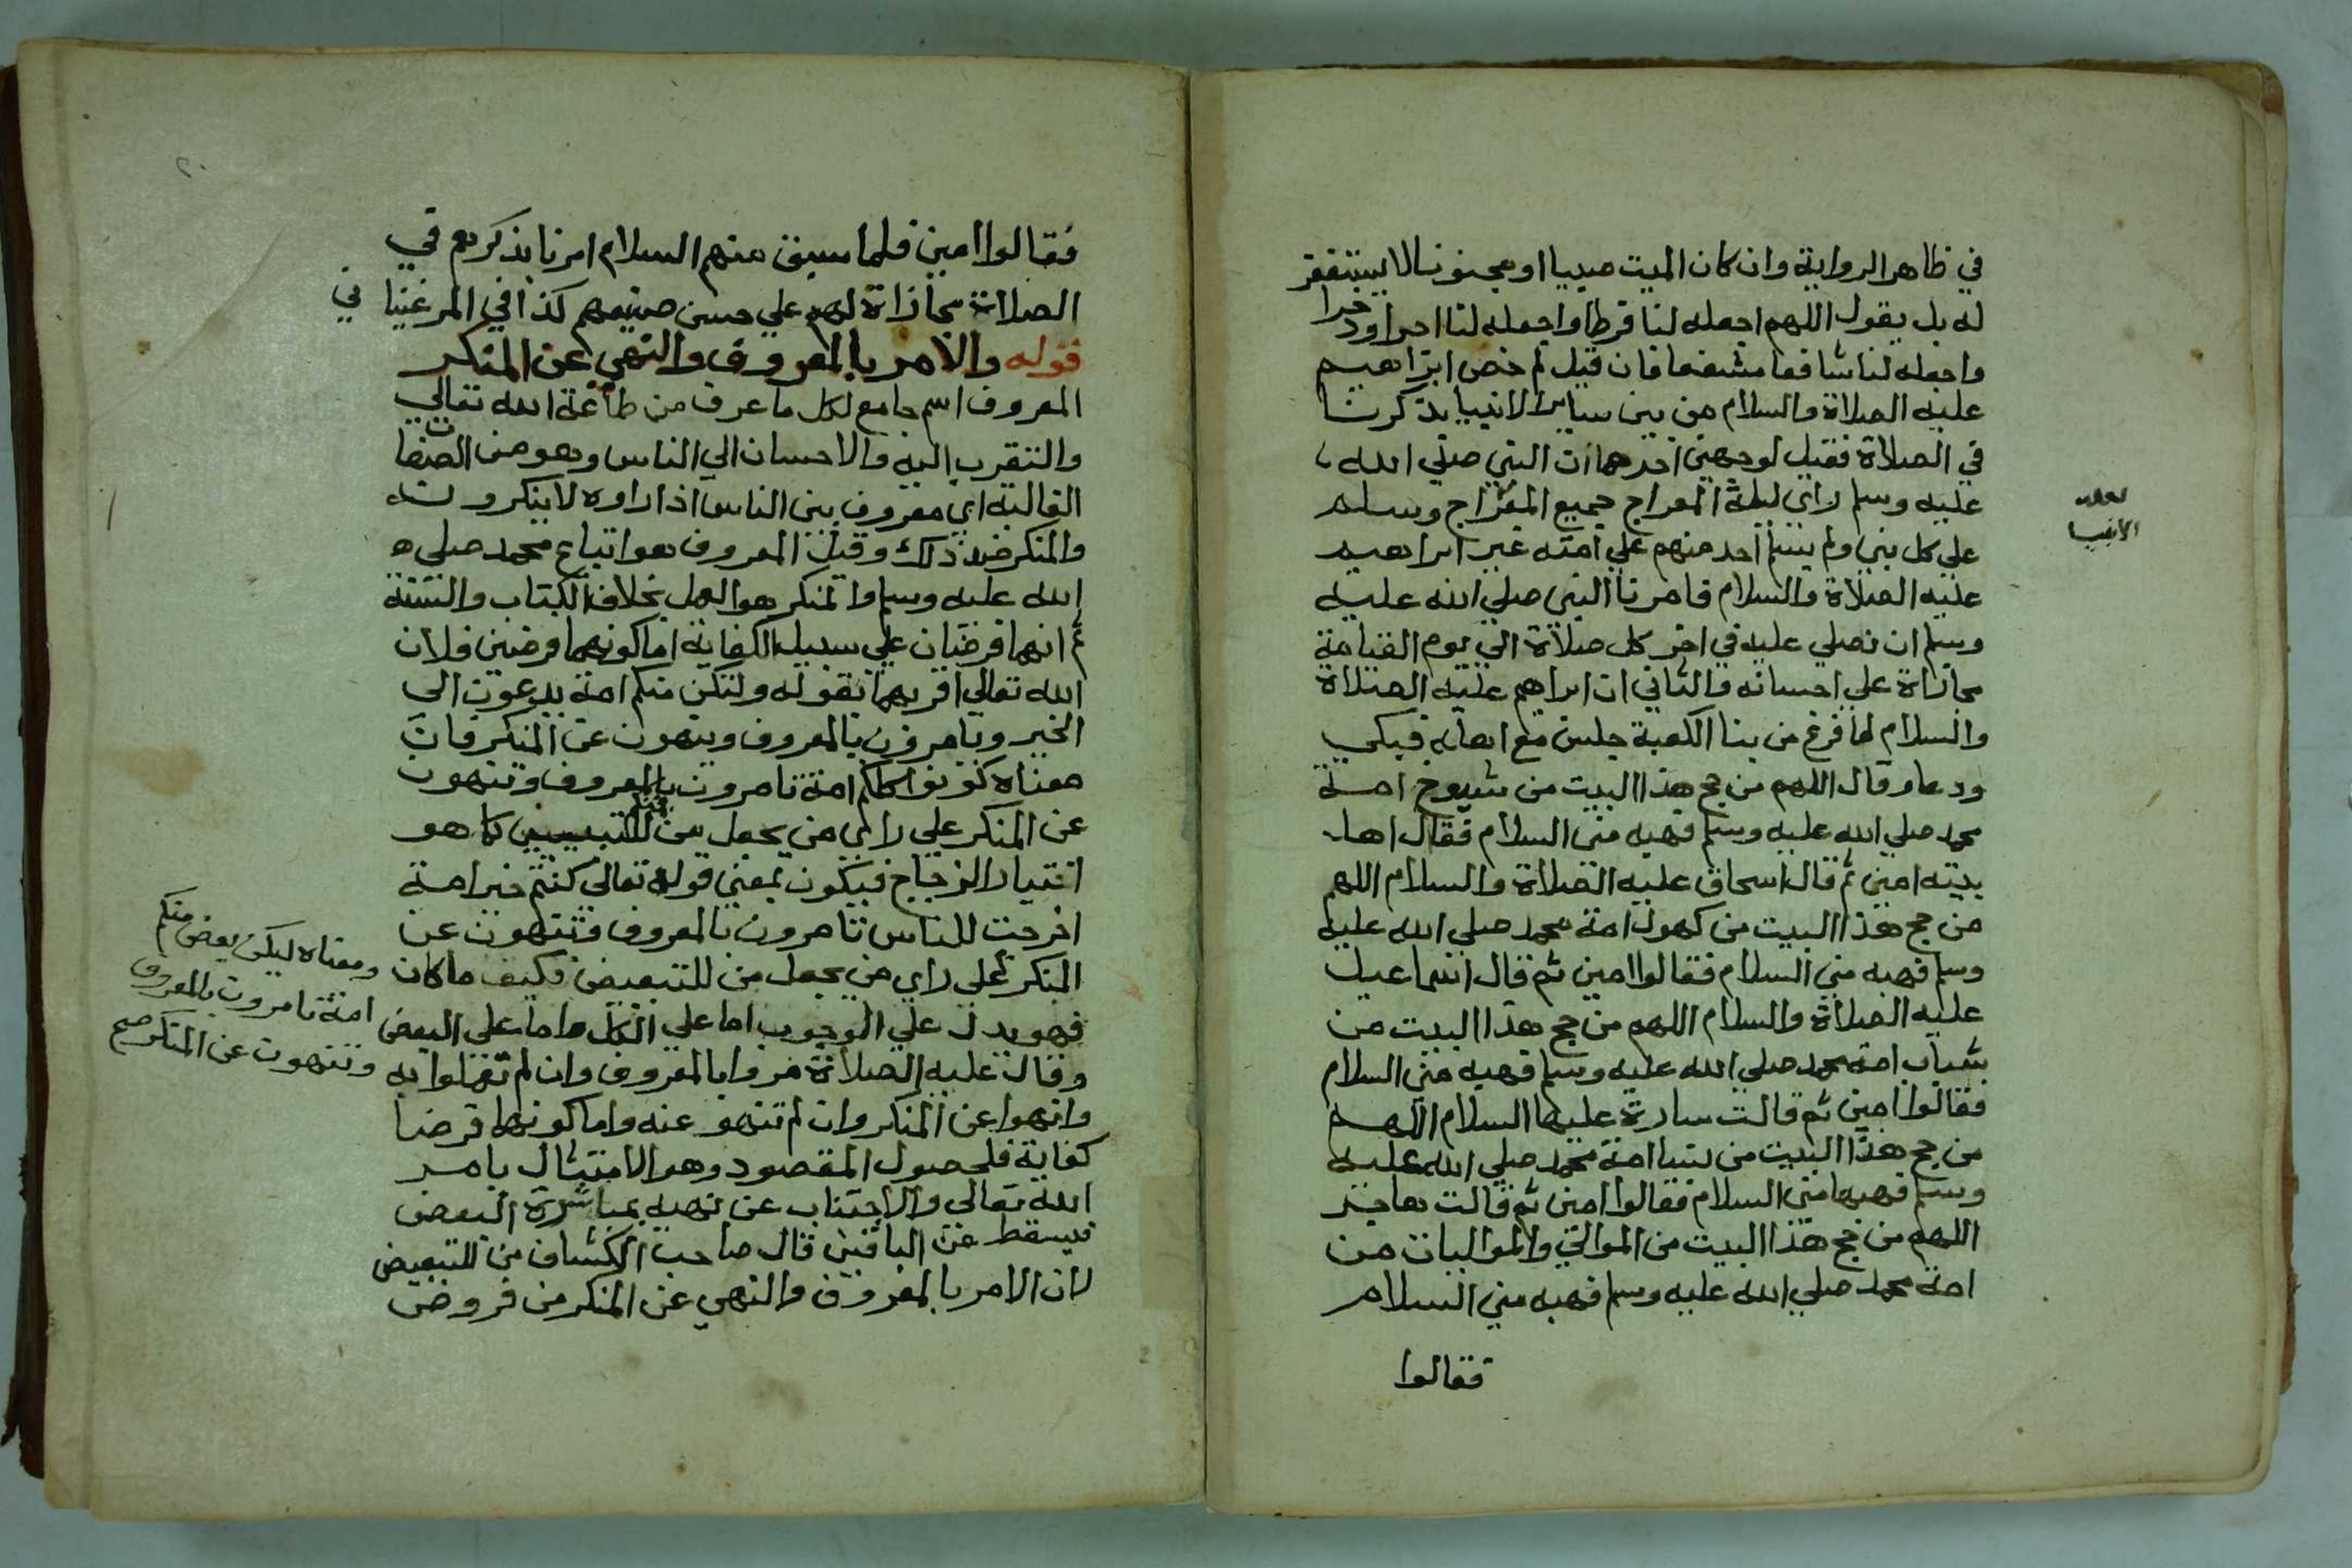 في ظاهر الرواية وان كان الميت صبيا او مجنونا لا يستغفر
له بل يقول اللهم اجعله لنا فرطا واجعله لنا اجرا وذخرا
واجعله لنا شافعا مشفعا فان قيل لم خص ابراهيم
عليه الصلاة والسلام من بين ساير الانبيا بذكرنا
في الصلاة فقيل لوجهين احدهما ان النبي صلي الله
عليه وسلم راي ليلة المعراج جميع وسلم
علي كل نبي ولم يسلم احد منهم علي امته غير ابراهيم
عليه الصلاة والسلام فامرنا النبي صلي الله عليه
وسلم ان نصلي عليه في اخر كل صلاة الي يوم القيامة
مجازاة علي احسانه والثاني ان ابراهيم عليه الصلاة
والسلام لما فرغ من بنا الكعبة جلس مع اهله فبكي
ودعا وقال اللهم من حج هذا البيت من شيوخ امة
محمد صلي الله عليه وسلم فهبه مني السلام فقال اهل
بيته امين ثم قال اسحاق عليه الصلاة والسلام اللهم
من حج هذا البيت من كهول امة محمد صلي الله عليه
وسلم فهبه مني السلام فقالوا امين ثم قال اسماعيل
عليه الصلاة والسلام اللهم من حج هذا البيت من
شباب امة محمد صلي الله عليه وسلم فهبه مني السلام
فقالوا امين ثم قالت سارة عليها السلام اللهم
من حج هذا البيت من نسا امة محمد صلي الله عليه
وسلم فهبها مني السلام فقالوا امين ثم قالت هاجر
اللهم من حج هذا البيت من الموالي والمواليات من
امة محمد صلي الله عليه وسلم فهبه مني السلام
فقالوا
لعله
الانبيا
فقالوا امين فلما سبق منهم السلام امرنا بذكرهم في
الصلاة مجازاة لهم علي حسن صنيعهم كذا في المرغينا ني
قوله والامر بالمعروف والنهي عن المنكر
المعروف اسم جامع لكل ما عرف من طاعة الله تعالي
والتقرب اليه والاحسان الي الناس وهو من الصفات
الغالبة اي معروف بين الناس اذا راوه لا ينكرونه
والمنكر ضد ذلك وقيل المعروف هو اتباع محمد صلي
الله عليه وسلم والمنكر هو العمل بخلاف الكتاب والسنة
ثم انهما فرضان علي سبيل الكفاية اما كونهما فرضين فلان
الله تعالي امر بهما بقوله ولتكن منكم امة يدعون الي
الخير ويامرون بالمعروف وينهون عن المنكر فان
معناه كونوا كلكم امة تامرون بالمعروف وتنهون
عن المنكر علي راي من يجعل من للتبيين كما هو
اختيار الزجاج فيكون بمعني قوله تعالي كنتم خير امة
اخرجت للناس تامرون بالمعروف وتنهون عن
المنكر علي راي من يجعل من للتبعيض فكيف ما كان
فهو يدل علي الوجوب اما علي الكل واما علي البعض
وقال عليه الصلاة مروا بالمعروف وان لم تعملوا به
وانهوا عن المنكر وان لم تنهو عنه واما كونهما فرضا
كفاية فلحصول المقصود وهو الامتثال بامر
الله تعالي والاجتناب عن نهيه بمباشرة البعض
فيسقط عن الباقين قال صاحب الكشاف من للتبعيض
لان الامر بالمعروف والنهي عن المنكر من فروض
ومعناه ليكن بعض منكم
امة تامرون بالمعروف
وتنهون عن المنكر صح